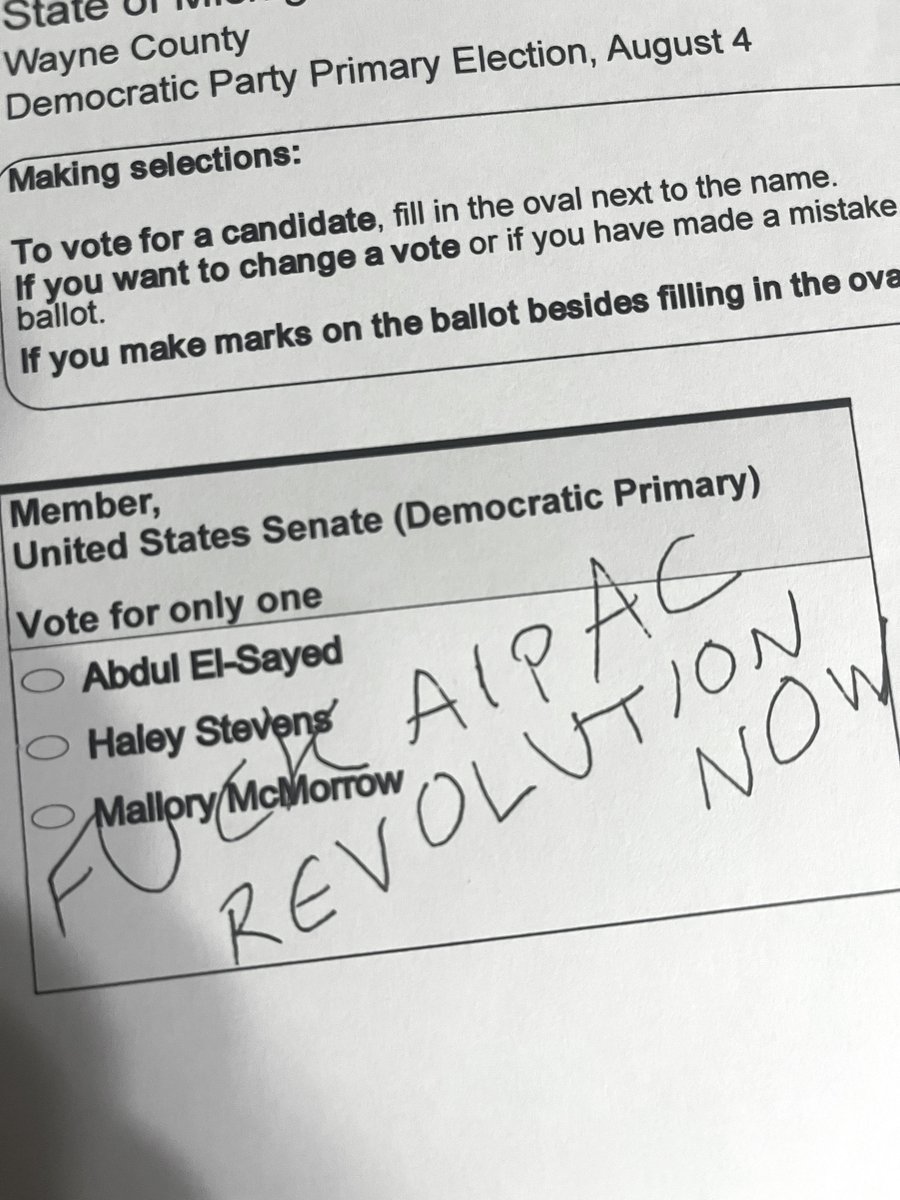 State of
Wayne County
Democratic Party Primary Election, August 4
Making selections:
To vote for a candidate, fill in the oval next to the name.
If you want to change a vote or if you have made a mistake
ballot.
If you make marks on the ballot besides filling in the
Member,
United States Senate (Democratic Primary)
Vote for only one
Abdul El-Sayed
Haley Stevens
Mallory McMorrow
FUCK AIPAC
REVOLUTION
NOW